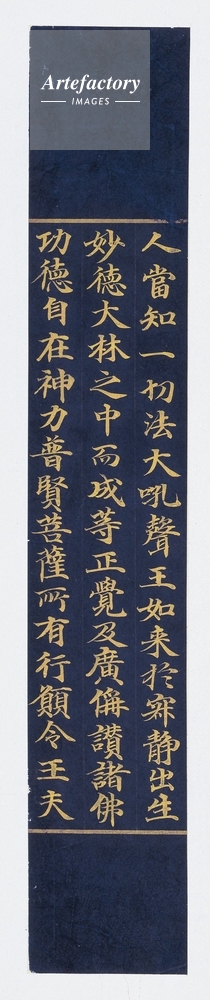 Artefactory
IMAGES
人當知一切法大吼聲王如来於寂静出生
妙德大林之中而成等正覺及廣偁讃諸佛
功德自在神力普賢菩薩所有行願令王夫